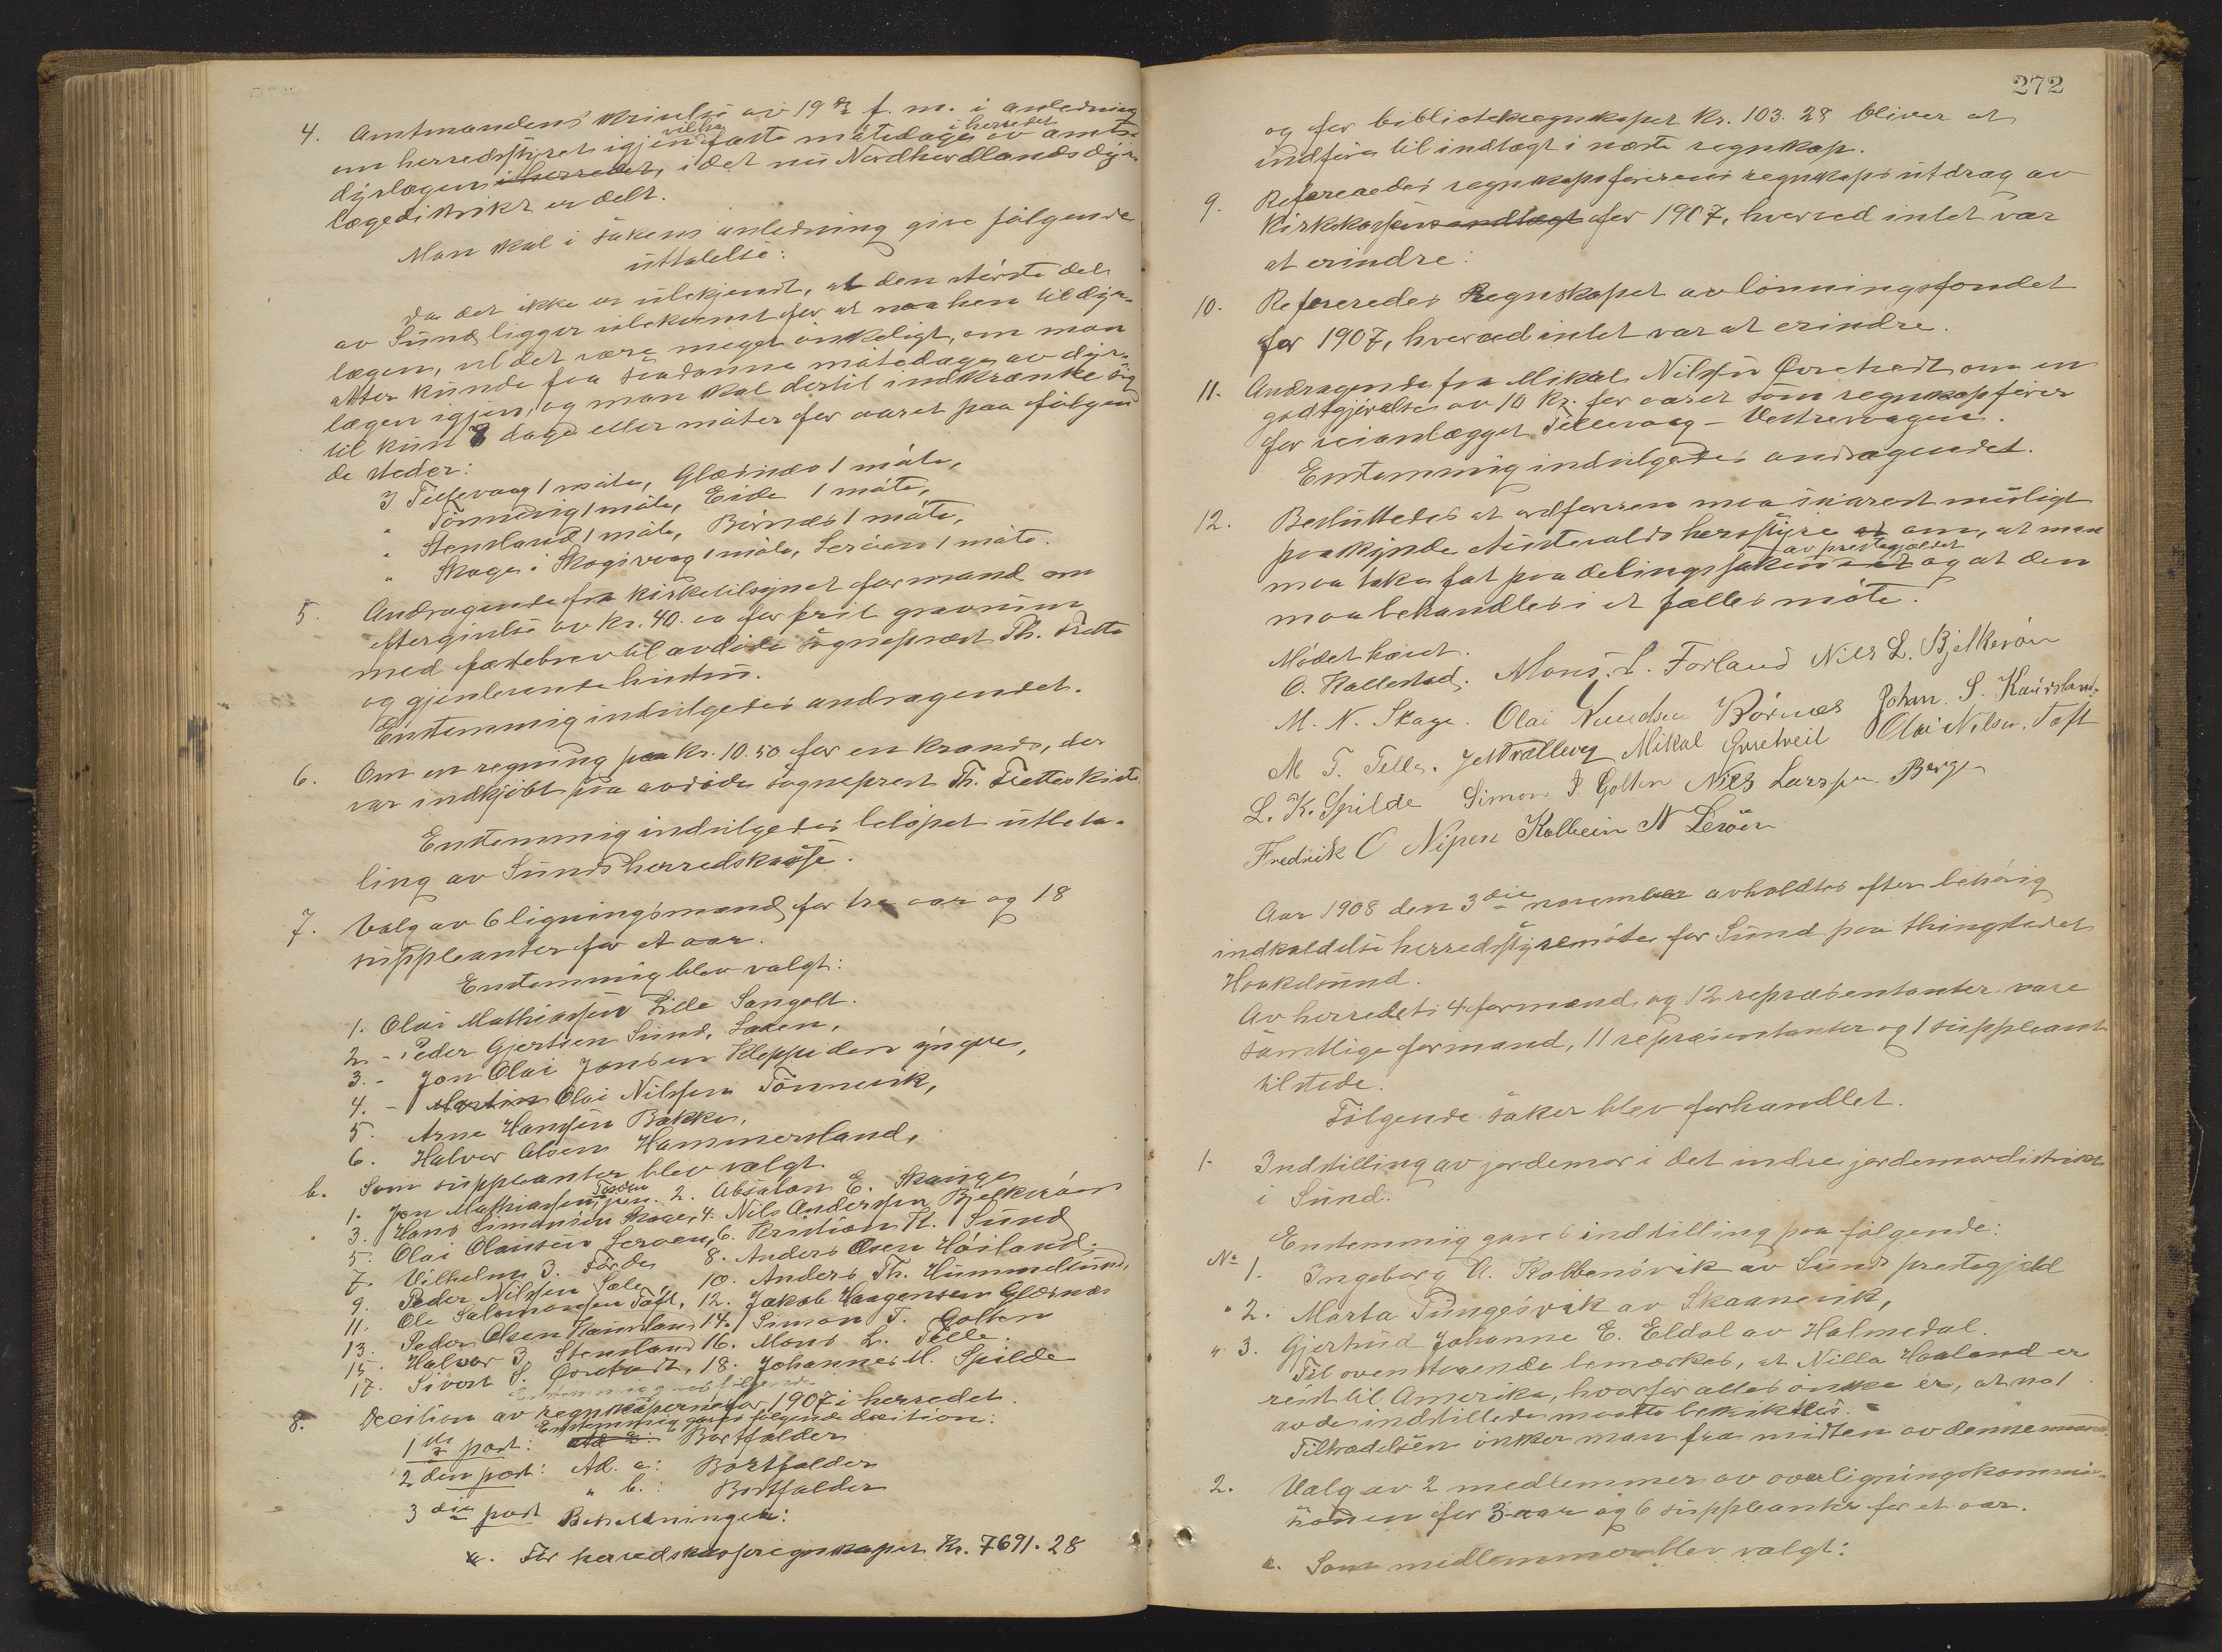 4. Amtmandens skrivelse av 19de f. m. i anledning
om herredsstyret igjen vil ha faste mötedage i herredet av amts-
dyrlægen i herredet, idet nu Nordhordlands dyr-
lægedistrikt er delt.
Man skal i sakens anledning give fölgende
uttalelse:
Da det ikke er ubekjendt, at den störste del
av Sund ligger ubekvemt for at naa hen til dyr-
lægen, vil det være meget önskeligt, om man
atter kunde faa saadanne mötedage av dyr-
lægen igjen, og man skal dertil indskrænke sig
til kun 8 dage eller möter for aaret paa fölgen-
de steder:
I Tellevaag 1 möte, Glæsnæs 1 möte,
" Tönnevig 1 möte, Eide 1 möte,
" Stensland 1 möte, Börnæs 1 möte,
" Skage i Skogsvaag 1 möte, Leröen 1 möte.
5. Andragende fra kirketilsynet formand om
eftergivelse av kr. 40. ca for frit gravrum
med fæstebrev til avdöde sogneprest Th. Frette
og gjenlevende hustru.
Enstemmig indvilgedes andragendet.
6. Om en regning paa kr. 10.50 for en krands, der
var indkjöbt paa avdöde sogneprest Th. Frettes kiste.
Enstemmig indvilgedes belöpet utbeta-
ling av Sunds herredskasse.
7. Valg av 6 ligningsmænd for tre aar og 18
suppleanter for et aar.
Enstemmig blev valgt:
1. Olai Mathiassen Lille Sangolt.
2 - Peder Gjertsen Sund, Laken,
3. - Jon Olai Jonsen Kleppe den yngre,
4. - Martin Olai Nilssen Tönnevik,
5. Arne Hansen Bakke,
6. Halvor Olsen Hammersland,
b. Som suppleanter blev valgt
1. Jon Mathiassen Forden jun. 2. Absalon E. Skange
3. Hans Simonsen Skage, 4. Nils Andersen Bjelkeröen
5. Olai Olaussen Leröen, 6. Kristian Kl. Sund
7. Vilhelm J. Förde, 8. Anders Olsen Höiland.
9. Peder Nilssen Sele, 10. Anders Th. Hummelsund,
11. Ole Salomonsen Toft, 12. Jakob Haagensen Glæsnæs
13. Peder Olsen Kausland 14. Simon T. Golten
15. Halvor J. Stensland 16. Mons L. Telle.
17. Sivert S. Qvretvedt, 18. Johannes M. Spilde
8. Decition av regnskaperne for 1907 i herredet.
Enstemmig gaves fölgende decition:
1ste post: Ad a: Bortfalder
2den post: Ad. a: Bortfalder
" b.: Bortfalder
3die post Beholdningen:
a. For herredskasseregnskapet Kr. 7691.28
272
og for biblioteksregnskapet Kr. 103.28 bliver at
indföre til indtægt i næste regnskap.
9. Refereredes regnskapsförerens regnskapsutdrag av
kirkekassens indtægt for 1907, hvorved intet var
at erindre.
10. Refereredes Regnskapet av lönningsfondet
for 1907, hvorved intet var at erindre.
11. Andragende fra Mikal Nilssen Qvretvedt om en
godtgjörelse av 10 kr. for aaret som regnskapförer
for veianlægget Tellevaag - Vestrevaagen.
Enstemmig indvilgedes andragendet.
12. Besluttedes at ordföreren maa snarest muligt
paaskynde Austevolds herrstyre at om, at man
maa take fat paa delingssaken av prestegjældet og at den
maa behandles i et fælles möte.
Mödet hævet.
O. Kallestad. Mons. L. Forland Nils L. Bjelkeröen
M. N. Skage. Olai Knudsen Börnæs Johan S. Kausland.
M T. Telle. Mikal Qvretveit Olai Nilsen. Toft
L. K. Spilde Simon T. Golten Nils Larssen Berge
Fredrik O Nipen Kolbein N Leröen
Aar 1908 den 3die november avholdtes efter behörig
indkaldelse herredsstyremöte for Sund paa thingstedet
Haakelsund.
Av herredets 4 formænd og 12 repræsentanter vare
samtlige formænd, 11 repræsentanter og 1 suppleant
tilstede.
Fölgende saker blev forhandlet.
1. Indstilling av jordemor i det indre jordemordistrikt
i Sund.
Enstemmig gaves indstilling paa fölgende:
No 1. Ingeborg A. Kolbensvik av Sunds prestegjeld
" 2. Marta Tungesvik av Skaanevik,
" 3. Gjertrud Johanne E. Eldal av Holmedal.
Til ovenstaaende bemærkes, at Nilla Haaland er
reist til Amerika, hvorfor alles önske er, at no 1
av de indstillede maatte beskikkes.
Tiltrædelsen önsker man fra midten av denne maaned.
2. Valg av 2 medlemmer av overligningskommis-
sionen for 3 aar og 6 suppleanter for et aar.
a. Som medlemmer blev valgt: